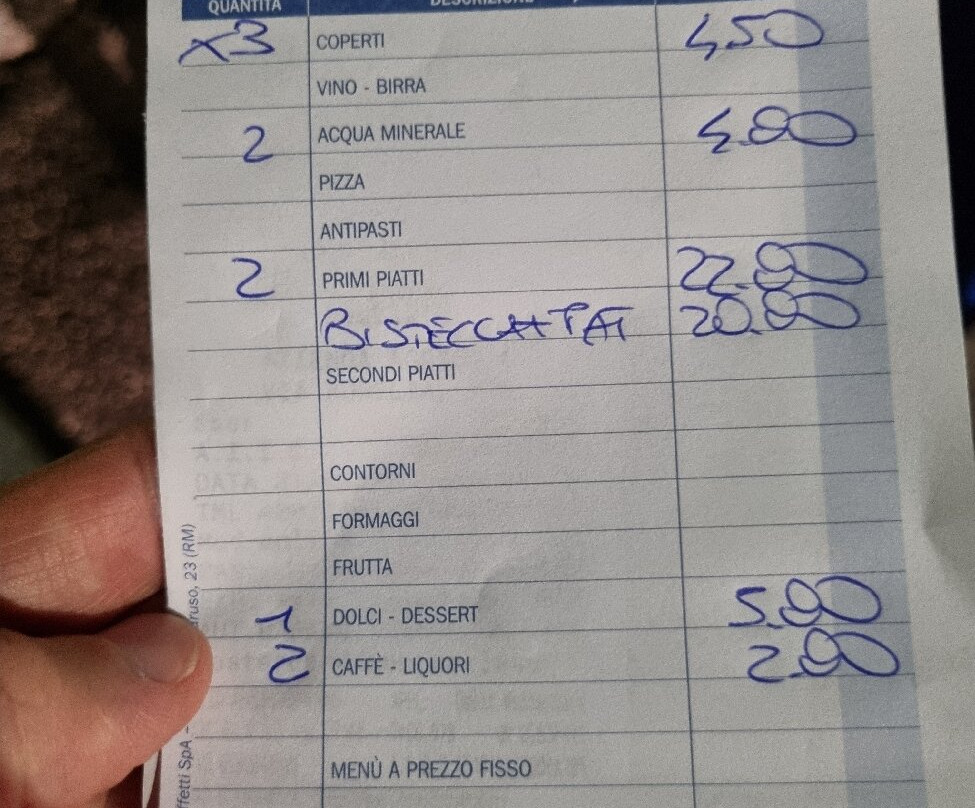 QUANTITÀ DESCRIZIONE
x3 COPERTI 4,50
VINO - BIRRA
2 ACQUA MINERALE 4.00
PIZZA
ANTIPASTI
2 PRIMI PIATTI 22.00
BISTECCA+PAT 20.00
SECONDI PIATTI
CONTORNI
FORMAGGI
FRUTTA
1 DOLCI - DESSERT 5.00
2 CAFFÈ - LIQUORI 2.00
MENÙ A PREZZO FISSO
ffetti SpA - ruso, 23 (RM)